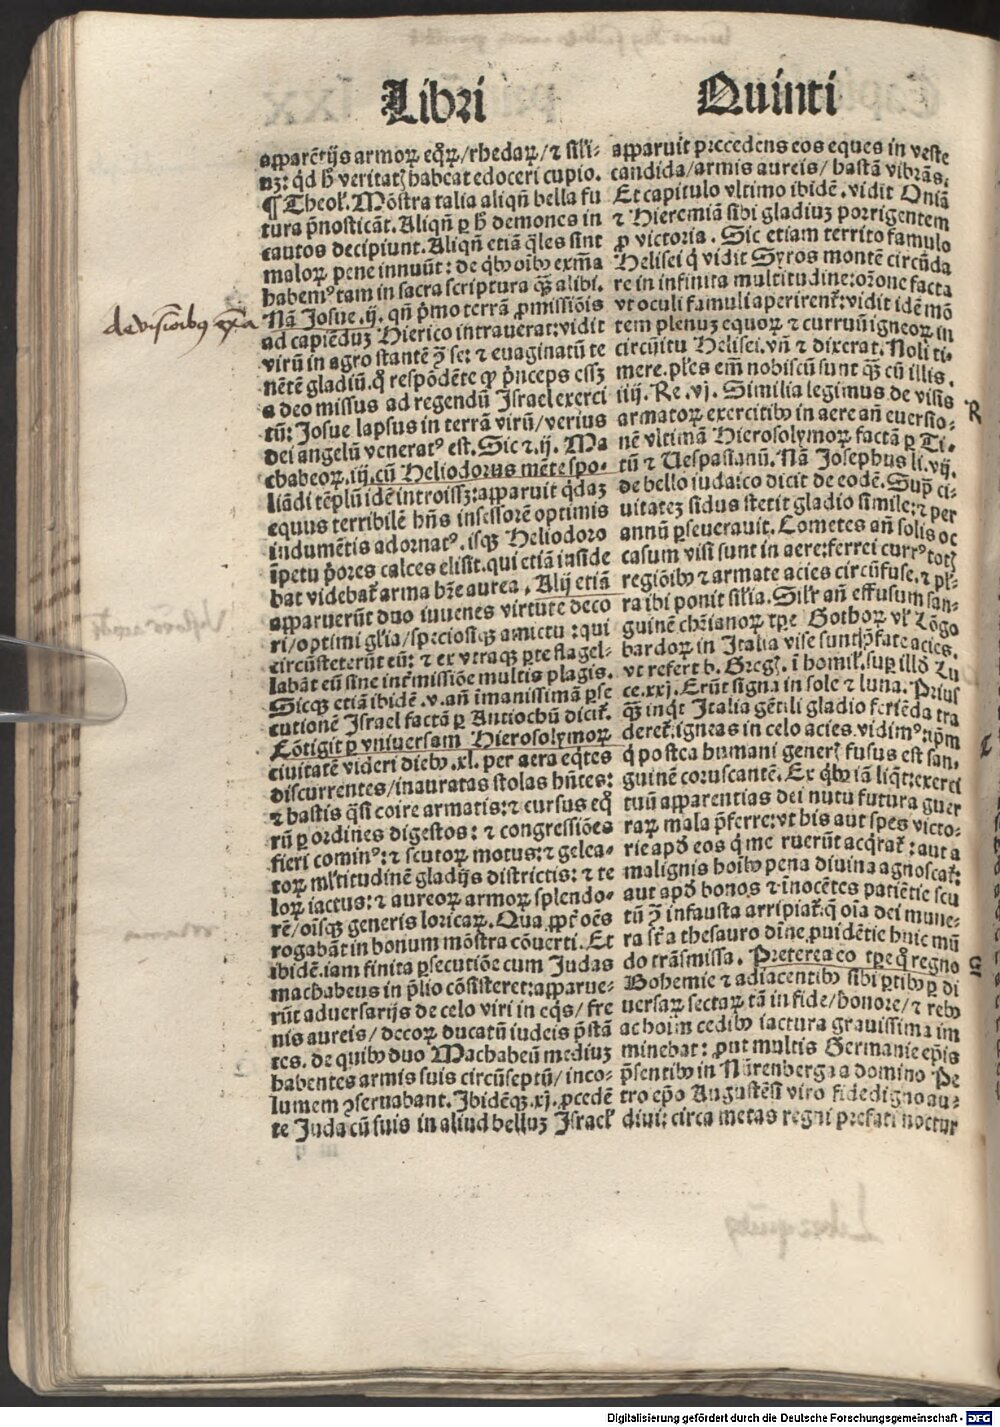 Libri Quinti
apparētijs armoꝝ eqͦꝝ/rhedaꝝ/⁊ sili-
uʒ: qd hͦ veritatꝭ habeat edoceri cupio.
¶ Theol. Mōstra talia aliqn̄ bella fu
tura p̄nosticāt. Aliqn̄ ꝑ hͦ demones in
cautos decipiunt. Aliqn̄ etiā q̄les sint
maloꝝ pene innuūt: de qbꝰ oibꝰ exm̄a
habemꝰ tam in sacra scriptura qꝫ alibi.
Nā Josue .ij. qn̄ p̄mo terrā ꝓmissiōis
ad capiēduʒ Hierico intrauerat: vidit
virū in agro stantē ꝯ se: ⁊ euaginatū te
nētē gladiū. q̄ respōdēte ꝙ p̄nceps essʒ
a deo missus ad regendū Israel exerci
tū: Josue lapsus in terrā virū/verius
dei angelū veneratꝰ est. Sic ⁊ .ij. Ma
chabeoꝝ .iij. cū Heliodorus mēte spo-
liādi tēplū idē introissʒ: apparuit qdaʒ
equus terribilē hn̄s insessorē optimis
indumētis adornatꝰ. isqꝫ Heliodoro
īpetu p̄ores calces elisit. qui etiā inside
bat videbat̄ arma hr̄e aurea. Alij etiā
apparuerūt duo iuuenes virtute deco
ri/optimi gl̄ia/speciosiqꝫ amictu: qui
circūsteterūt eū: ⁊ ex vtraqꝫ ꝑte flagel-
labāt eū sine int̄missiōe multis plagis.
Sicqꝫ etiā ibidē .v. an̄ īmanissimā ꝑse
cutionē Israel factā ꝑ Antiochū dicit̄.
Cōtigit ꝑ vniuersam Hierosolymoꝝ
ciuitatē videri diebꝰ .xl. per aera eqtes
discurrentes/inauratas stolas hn̄tes:
⁊ hastis q̄si coire armatis: ⁊ cursus eqͦ
rū ꝑ ordines digestos: ⁊ congressiōes
fieri cominꝰ: ⁊ scutoꝝ motus: ⁊ galea-
toꝝ ml̄titudinē gladijs districtis: ⁊ te
loꝝ iactus: ⁊ aureoꝝ armoꝝ splendo-
rē/oīsqꝫ generis loricaꝝ. Qua ꝓpt̄ oēs
rogabāt in bonum mōstra cōuerti. Et
ibidē. iam finita ꝑsecutiōe cum Judas
machabeus in p̄lio cōsisteret: apparue-
rūt aduersarijs de celo viri in eqs/fre
nis aureis/decoꝝ ducatū iudeis p̄stā
tes. de quibꝰ duo Machabeū mediuʒ
habentes armis suis circūseptū/inco-
lumem ꝯseruabant. Ibidēqꝫ .xj. ꝓcedē
te Juda cū suis in aliud belluʒ Israel
apparuit precedens eos eques in veste
candida/armis aureis/hastā vibrās.
Et capitulo vltimo ibidē. vidit Oniā
⁊ Hieremiā sibi gladiuʒ porrigentem
ꝓ victoria. Sic etiam territo famulo
Helisei q̄ vidit Syros montē circūda
re in infinita multitudine: orōne facta
vt oculi famuli aperirent̄: vidit idē mō
tem plenuʒ equoꝝ ⁊ curruū igneoꝝ in
circūitu Helisei. vn̄ ⁊ dixerat. Noli ti-
mere. pl̄es em̄ nobiscū sunt qꝫ cū illis.
iiij. Re .vj. Similia legimus de visis
armatoꝝ exercitibꝰ in aere an̄ euersio-
nē vltimā Hierosolymoꝝ factā ꝑ Ti-
tū ⁊ Uespasianū. Nā Josephus li. vij.
de bello iudaico dicit de eodē. Supͣ ci-
uitateʒ sidus stetit gladio simile: ⁊ per
annū ꝑseuerauit. Cometes an̄ solis oc
casum visi sunt in aere: ferrei currꝰ totꝭ
regiōibꝰ ⁊ armate acies circūfuse. ⁊ pl̄-
ra ibi ponit sil̄ia. Sil̄r an̄ effusum san-
guinē chr̄ianoꝝ tp̄e Gothoꝝ vl̄ Lōgo
bardoꝝ in Italia vise sunt p̄fate acies.
vt refert b. Greg. ī homil. suꝑ illd Lu
ce .xxj. Erūt signa in sole ⁊ luna. Prius
qꝫ inqt Italia gētili gladio feriēda tra
deret̄: igneas in celo acies vidimꝰ: ip̄m
q̄ postea humani generꝭ fusus est san-
guinē coruscantē. Ex qbꝰ iā liqt: exerci
tuū apparentias dei nutu futura guer
raꝝ mala p̄ferre: vt his aut spes victo-
rie apd̄ eos q̄ me ruerūt acqrat̄: aut a
malignis hoibꝰ pena diuina agnoscat̄:
aut apd̄ bonos ⁊ īnocētes patiētie scu
tū ꝯ infausta arripiat̄. q̄ oīa dei mune-
ra st̄ a thesauro dīne ꝓuidētie huic mū
do trāsmissa. Preterea eo tp̄e qͦ regno
Bohemie ⁊ adiacentibꝰ sibi ꝑtibꝰ ꝑ di
uersaꝝ sectaꝝ tā in fide/honore/⁊ rebꝰ
ac hoim cedibꝰ iactura grauissima im
minebat: ꝓut multis Germanie ep̄is
p̄sentibꝰ in Nūrenberga a domino Pe
tro ep̄o Augustēsi viro fidedigno au-
diui: circa metas regni prefati noctur
de visionibus exēa
Digitalisierung gefördert durch die Deutsche Forschungsgemeinschaft - DFG